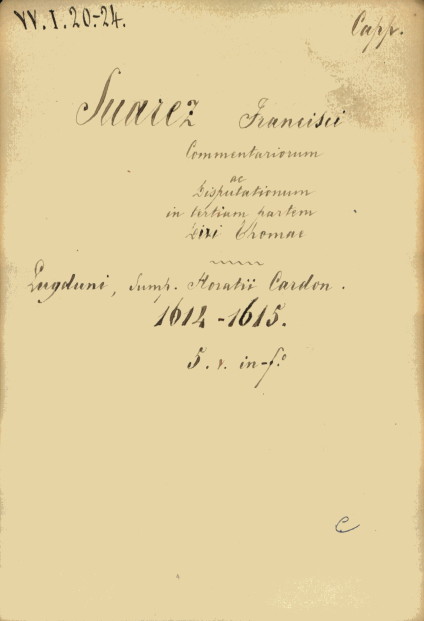 VV.I.20-24.
Capp.
Suarez Francisci
Commentariorum
ac
Disputationum
in tertiam partem
Divi Thomae
Lugduni, Sump. Horatii Cardon.
1614-1615.
5. v. in-f.º
C